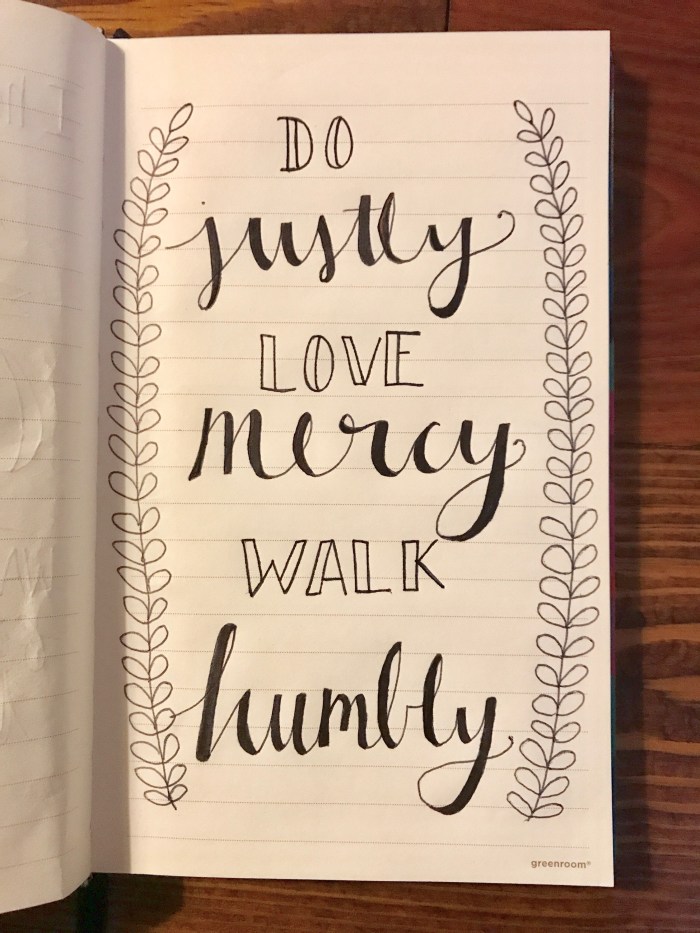 DO
justly
LOVE
mercy
WALK
humbly
greenroom®